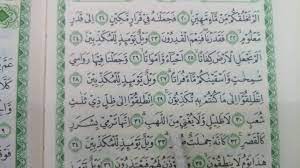 أَلَمْ نَخْلُقكُّم مِّن مَّآءٍ مَّهِينٍ ٢٠ فَجَعَلْنَٰهُ فِى قَرَارٍ مَّكِينٍ ٢١ إِلَىٰ قَدَرٍ
مَّعْلُومٍ ٢٢ فَقَدَرْنَا فَنِعْمَ ٱلْقَٰدِرُونَ ٢٣ وَيْلٌ يَوْمَئِذٍ لِّلْمُكَذِّبِينَ ٢٤
أَلَمْ نَجْعَلِ ٱلْأَرْضَ كِفَاتًا ٢٥ أَحْيَآءً وَأَمْوَٰتًا ٢٦ وَجَعَلْنَا فِيهَا رَوَٰسِىَ
شَٰمِخَٰتٍ وَأَسْقَيْنَٰكُم مَّآءً فُرَاتًا ٢٧ وَيْلٌ يَوْمَئِذٍ لِّلْمُكَذِّبِينَ ٢٨
ٱنطَلِقُوٓا۟ إِلَىٰ مَا كُنتُم بِهِۦ تُكَذِّبُونَ ٢٩ ٱنطَلِقُوٓا۟ إِلَىٰ ظِلٍّ ذِى ثَلَٰثِ
شُعَبٍ ٣٠ لَّا ظَلِيلٍ وَلَا يُغْنِى مِنَ ٱللَّهَبِ ٣١ إِنَّهَا تَرْمِى بِشَرَرٍ
كَٱلْقَصْرِ ٣٢ كَأَنَّهُۥ جِمَٰلَتٌ صُفْرٌ ٣٣ وَيْلٌ يَوْمَئِذٍ لِّلْمُكَذِّبِينَ